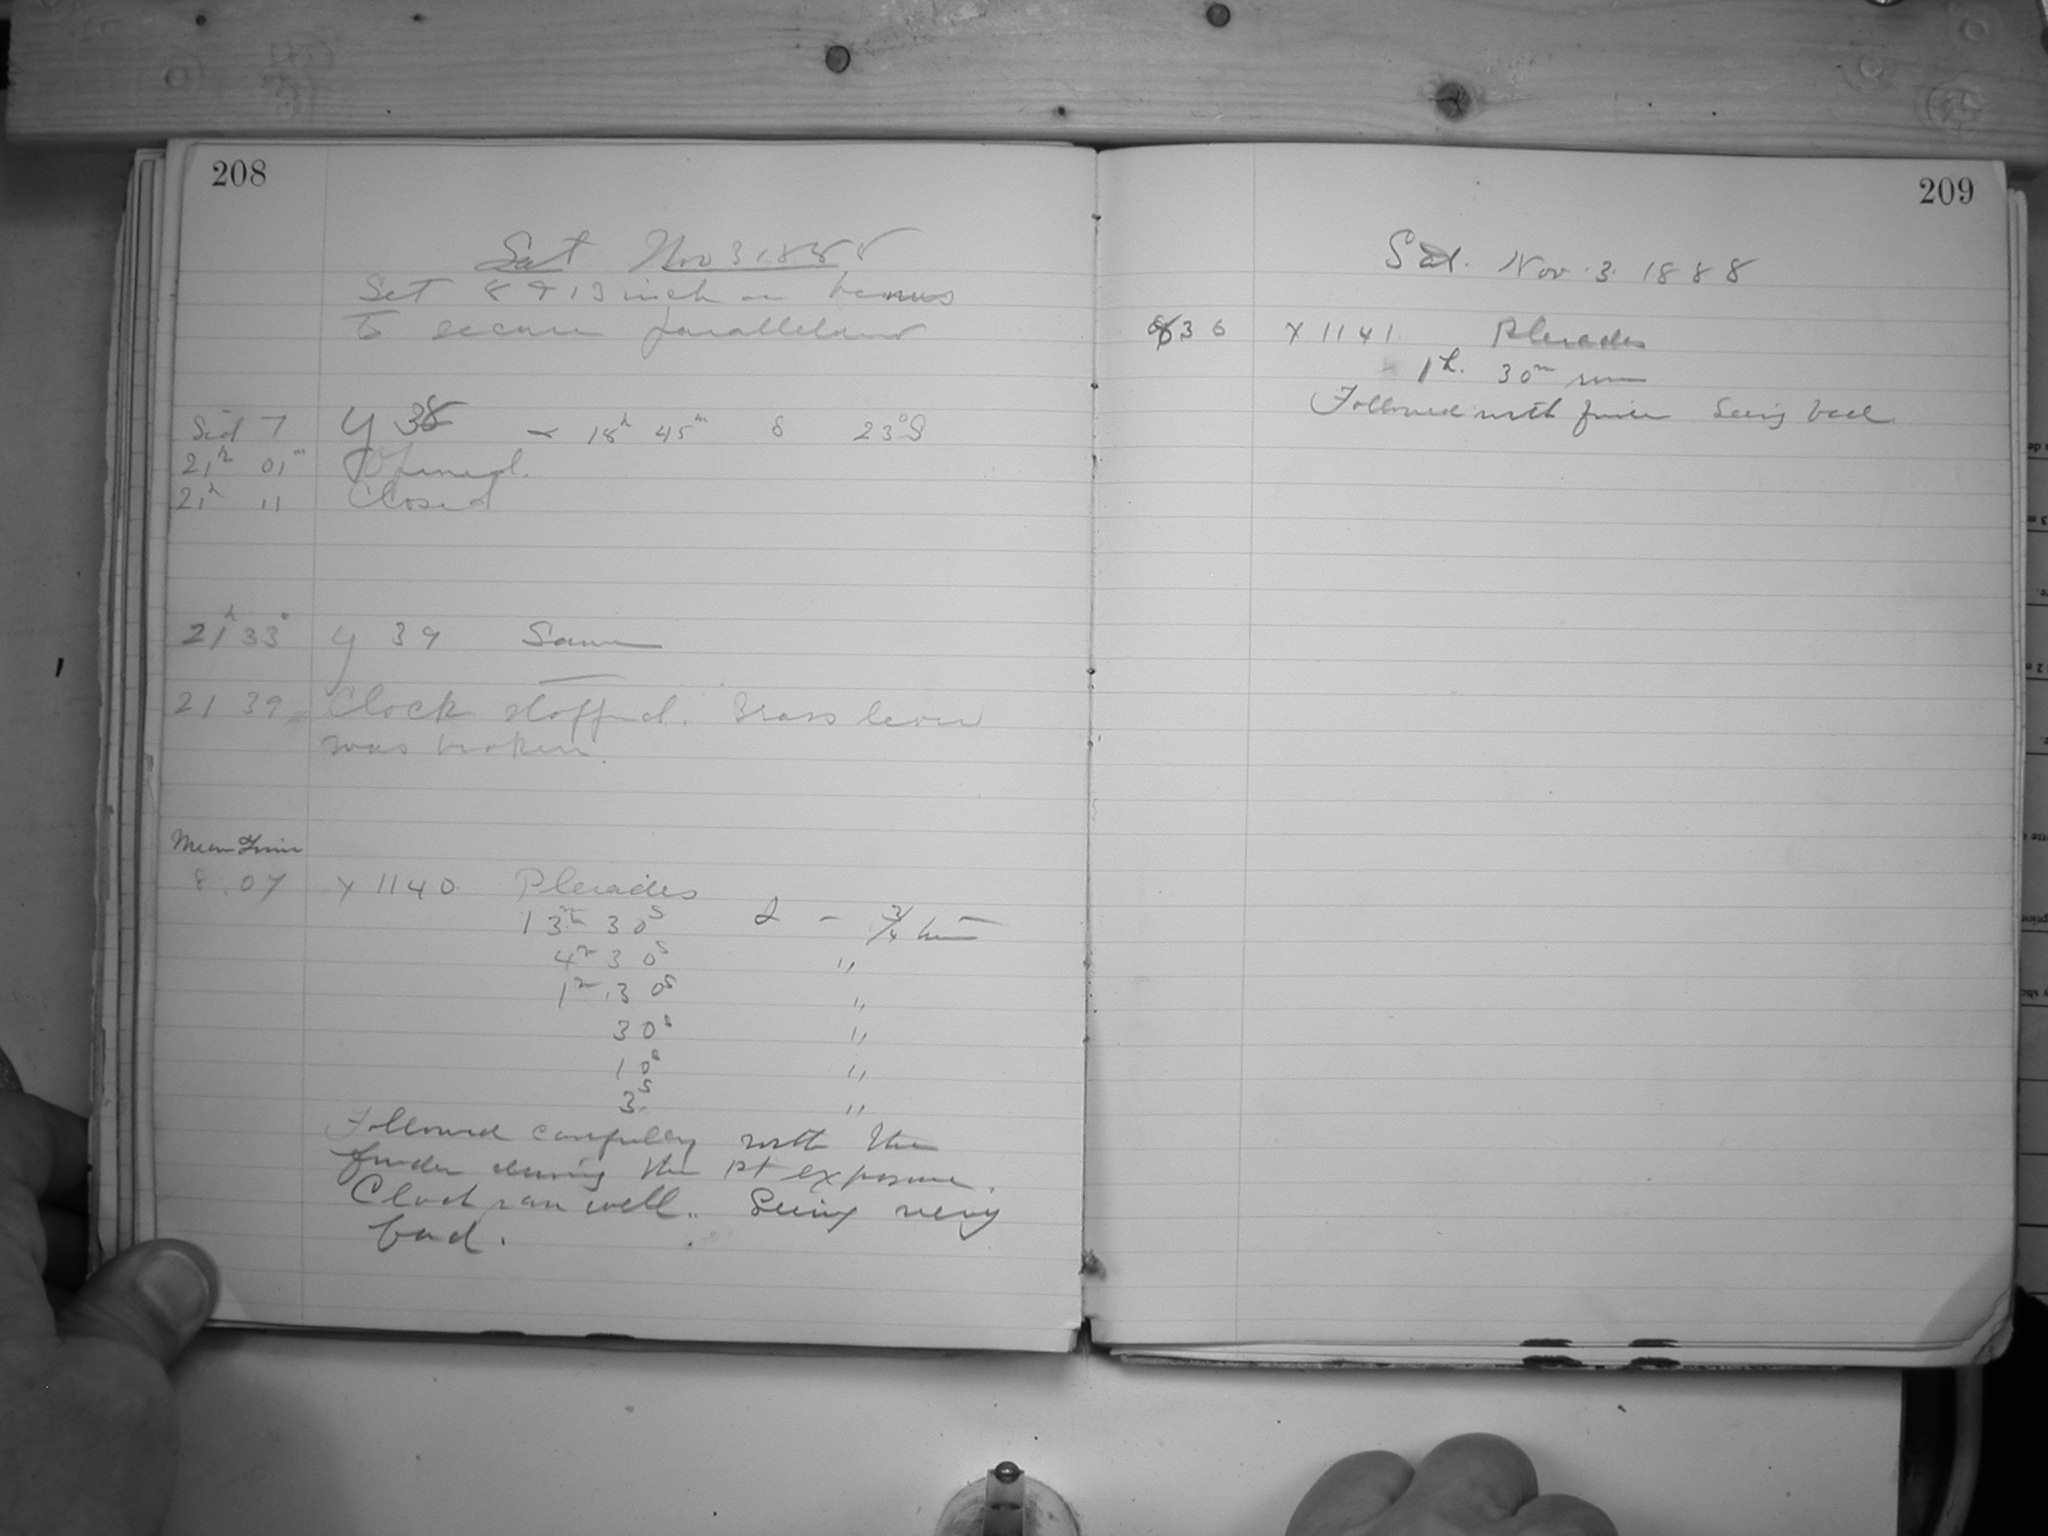 208
Sat Nov 3 1888
Set 8 & 13 inch on Venus
to secure parallelism
Sid T Y 38 α 18h 45m δ 23°S
21h 01m Opened.
21h 11 Closed
21h 33 Y 39 Same
21 39 Clock stopped. Brass lever
was broken.
Mean Time
8:07 X 1140 Pleiades
13m 30s α - 3/4 turn
4m 30s "
1m 30s "
30s "
10s "
3s "
Followed carefully with the
finder during the 1st exposure.
Clock ran well. Seeing very
bad.
209
Sat. Nov. 3. 1888
36 X 1141. Pleiades
1h. 30m run
Followed with finder Seeing bad